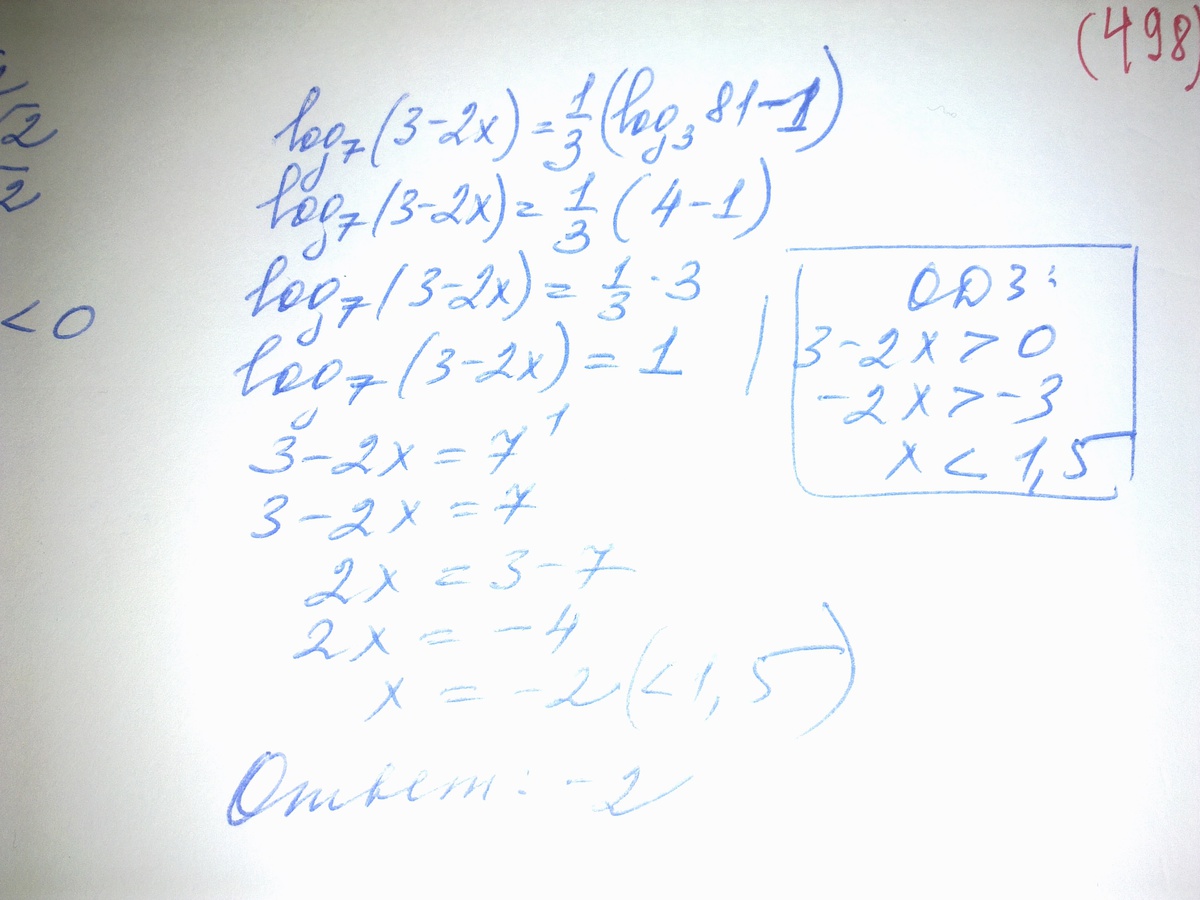 (498)
√2
√2
< 0
log₇(3-2x) = 1/3 (log₃ 81-1)
log₇(3-2x) = 1/3 (4-1)
log₇(3-2x) = 1/3 · 3
log₇(3-2x) = 1 |
3-2x = 7¹
3-2x = 7
2x = 3-7
2x = -4
x = -2 (< 1,5)
Ответ: -2
ОДЗ:
3-2x > 0
-2x > -3
x < 1,5